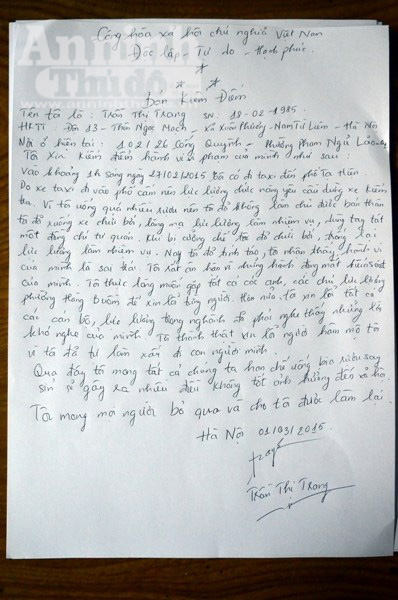 An ninh
Thủ đô
www.anninhthudo.vn
Cộng hòa xã hội chủ nghĩa Việt Nam
Độc lập - Tự do - Hạnh phúc.
Bản Kiểm Điểm
Tên tôi là: Trần Thị Trang sn: 18-02-1985.
HKTT: Đội 13 - Thôn Ngọc Mạch - Xã Xuân Phương - Nam Từ Liêm - Hà Nội
Nơi ở hiện tại: 102/26 Cống Quỳnh - Phường Phạm Ngũ Lão
Tôi Xin kiểm điểm hành vi vi phạm của mình như sau:
Vào khoảng 1h sáng ngày 27/02/2015 tôi có đi taxi đến phố Tạ Hiện
Do xe taxi đi vào phố cấm nên lực lượng chức năng yêu cầu dừng xe kiểm
tra. Vì tôi uống quá nhiều rượu nên tôi đã không làm chủ được bản thân
tôi đã xuống xe chửi bới, lăng mạ lực lượng làm nhiệm vụ, dùng tay tát
một đồng chí tự quản. Khi bị cưỡng chế tôi đã chửi bới, chống lại
lực lượng làm nhiệm vụ. Nay tôi đã tỉnh táo, tôi nhận thấy hành vi
của mình là sai trái. Tôi rất ân hận vì những hành động mất kiểm soát
của mình. Tôi thức lòng muốn gặp tất cả các anh, các chú lực lượng
phường Hàng Buồm để xin lỗi từng người. Hơn nữa, tôi xin lỗi tất cả
các cán bộ, lực lượng trong nghành đã phải nghe thấy những lời
khó nghe của mình. Tôi thành thật xin lỗi người hâm mộ tôi
vì tôi đã tự làm xấu đi con người mình.
Qua đây tôi mong tất cả chúng ta hạn chế uống bia rượu say
sỉn sẽ gây ra nhiều điều không tốt ảnh hưởng đến xã hội.
Tôi mong mọi người bỏ qua và cho tôi được làm lại.
Hà Nội 01/03/2015.
Trần Thị Trang